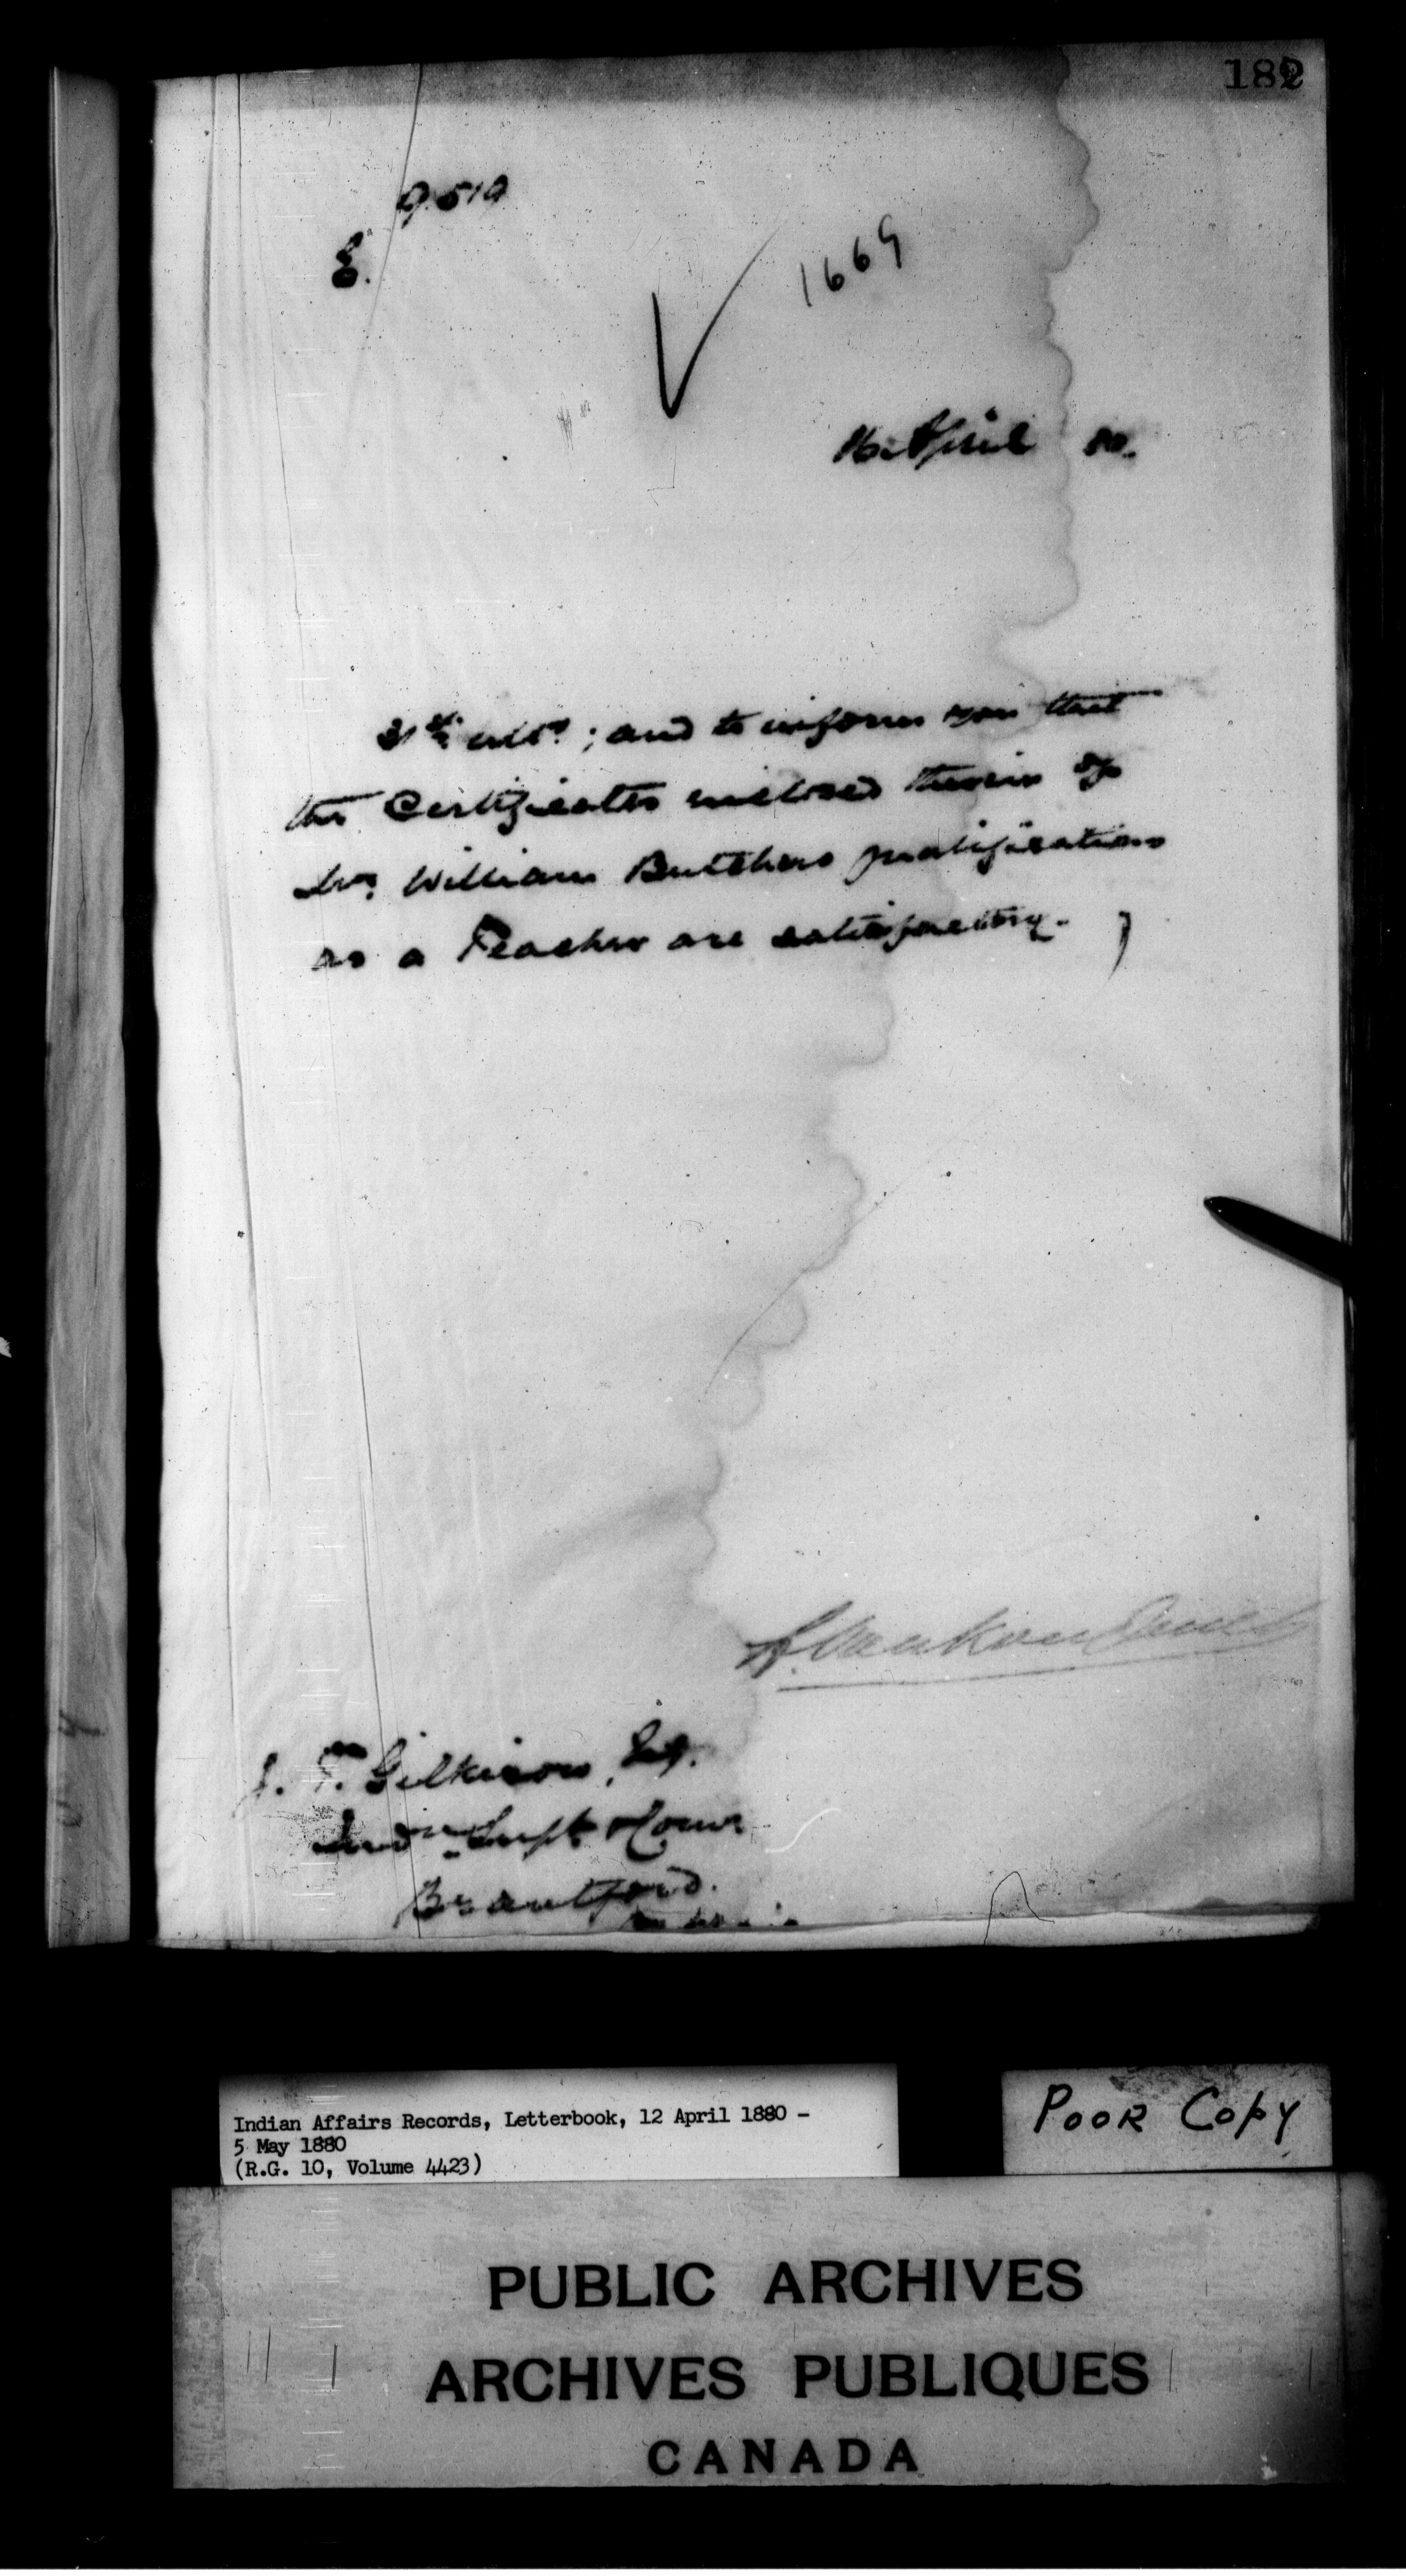 182
9519
E.
1669
16 April 80.
31st ulto; and to inform you that
the Certificates enclosed therein of
Mr. William Butchers qualifications
as a Teacher are satisfactory.
L. Vankoughnet
J. T. Gilkison, Esq.
Indn. Supt & Comr
Brantford.
Indian Affairs Records, Letterbook, 12 April 1880 -
5 May 1880
(R.G. 10, Volume 4423)
POOR COPY
PUBLIC ARCHIVES
ARCHIVES PUBLIQUES
CANADA